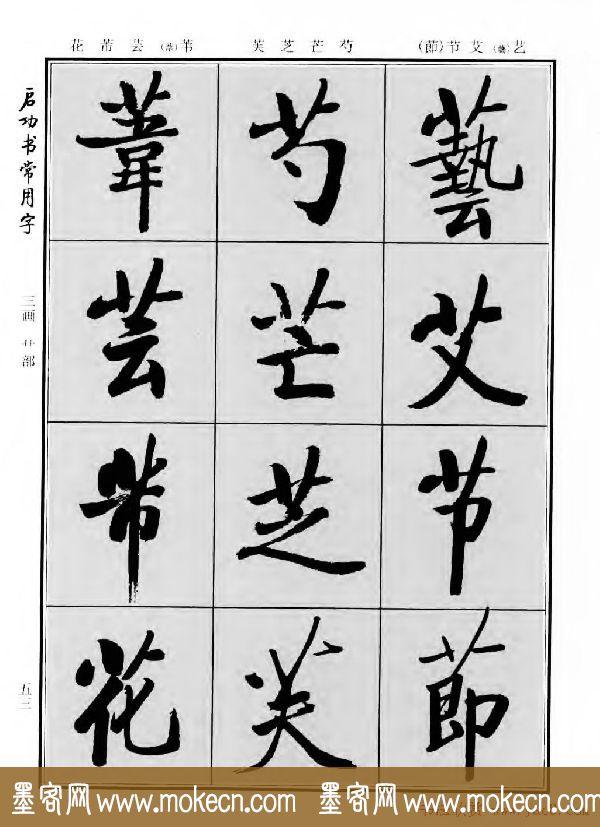 艺(藝)艾节(節)
芍芒芝芙
苇(葦)芸芾花
藝艾节節
芍芒芝芙
葦芸芾花
启功书常用字
三画 艹部
五三
墨客网 www.mokecn.com 墨客网 www.mokecn.com